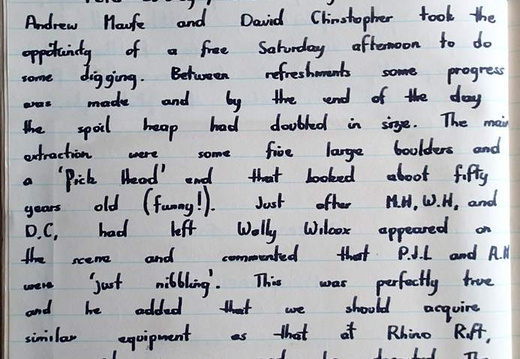 Andrew Maufe and David Christopher took the
oppotunity of a free Saturday afternoon to do
some digging. Between refreshments some progress
was made and by the end of the day
the spoil heap had doubled in size. The main
extraction were some five large boulders and
a 'Pick Head' end that looked about fifty
years old (funny!). Just after M.H, W.H, and
D.C, had left Wally Wilcox appeared on
the scene and commented that P.J.L and A.M
were 'just nibbling'. This was perfectly true
and he added that we should acquire
similar equipment as that at Rhino Rift,